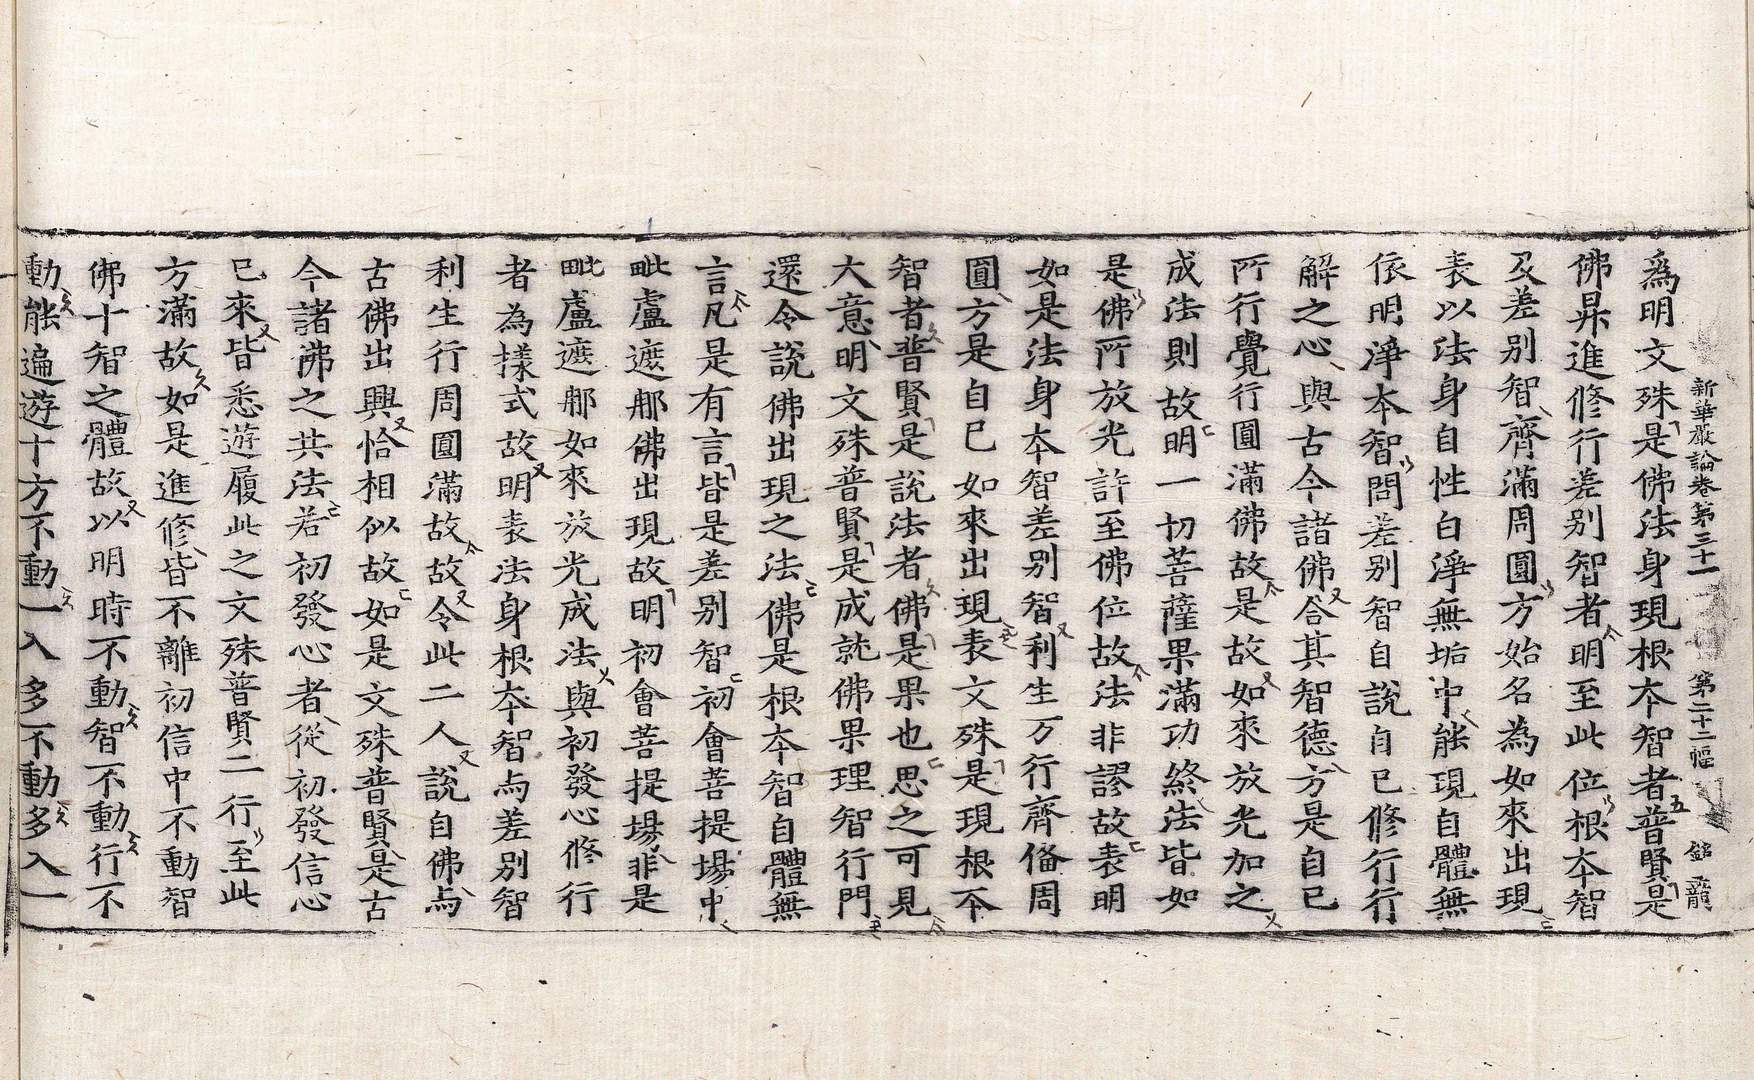 新華嚴論卷第三十一 第二十二幅 銘 龍
爲明文殊是佛法身現根本智者普賢是
佛昇進修行差别智者明至此位根本智
及差别智齊滿周圓方始名為如來出現
表以法身自性白淨無垢中能現自體無
依明淨本智問差别智自說自已修行行
解之心與古今諸佛合其智德方是自已
所行覺行圓滿佛故是故如來放光加之
成法則故明一切菩薩果滿功終法皆如
是佛所放光許至佛位故法非謬故表明
如是法身本智差别智利生万行齊俻周
圓方是自已如來出現表文殊是現根本
智者普賢是說法者佛是果也思之可見
大意明文殊普賢是成就佛果理智行門
還令說佛出現之法佛是根本智自體無
言凡是有言皆是差别智初會菩提場中
毗盧遮那佛出現故明初會菩提場非是
毗盧遮那如來放光成法與初發心修行
者為樣式故明表法身根本智与差别智
利生行周圓滿故故令此二人說自佛与
古佛出興恰相似故如是文殊普賢是古
今諸佛之共法若初發心者從初發信心
已來皆悉遊履此之文殊普賢二行至此
方滿故如是進修皆不離初信中不動智
佛十智之體故以明時不動智不動行不
動能遍遊十方不動一入多不動多入一